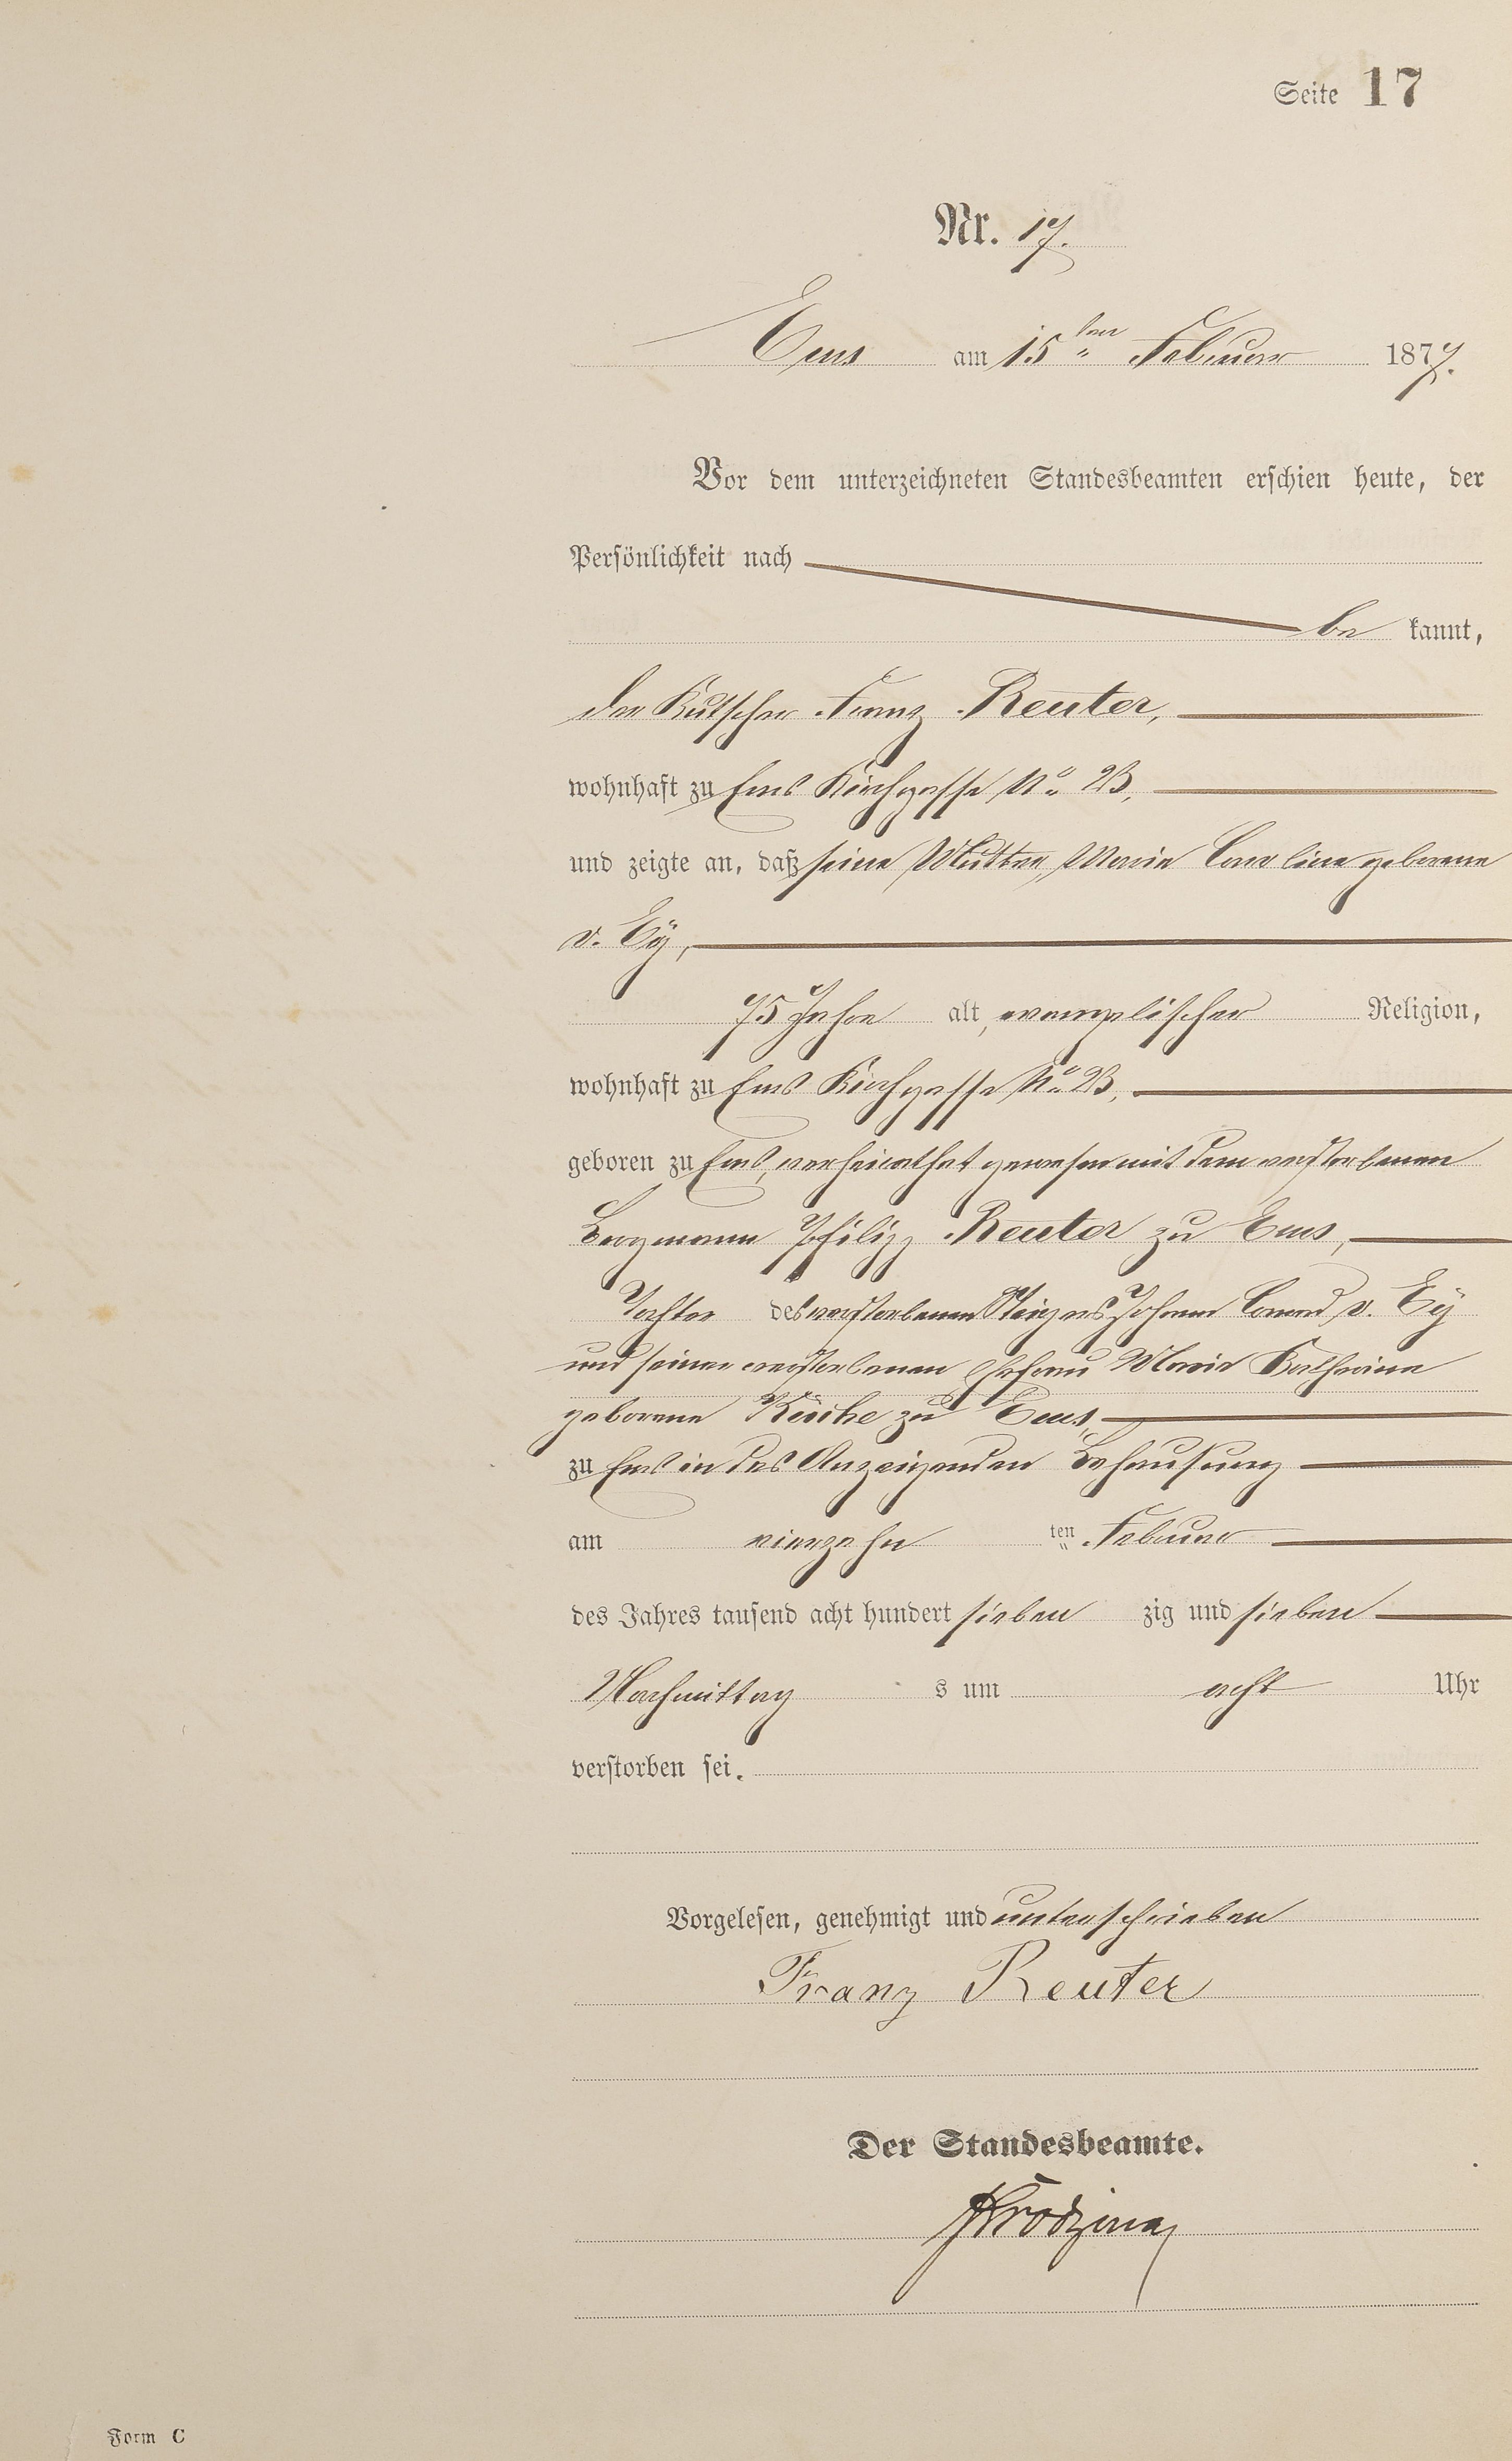 Seite 17
Nr. 17.
Ems am 15ten Februar 1877.
Vor dem unterzeichneten Standesbeamten erschien heute, der
Persönlichkeit nach
be kannt,
der Kutscher Franz Reuter,
wohnhaft zu Ems Kirchgasse No 23,
und zeigte an, daß seine Mutter, Marie Caroline geborene
v. Eÿ,
75 Jahre alt, evangelischer Religion,
wohnhaft zu Ems Kirchgasse No 23,
geboren zu Ems, verheirathet gewesen mit dem verstorbenen
Bergmann Philipp Reuter zu Ems,
Tochter des verstorbenen Steigers Johann Conrad v. Eÿ
und seiner verstorbenen Ehefrau Marie Katharine
geborene zu Ems,
zu Ems in des Anzeigenden Behausung
am vierzehn ten Februar
des Jahres tausend acht hundert sieben zig und sieben
Nachmittag s um acht Uhr
verstorben sei.
Vorgelesen, genehmigt und unterschrieben
Franz Reuter
Der Standesbeamte.
Form C